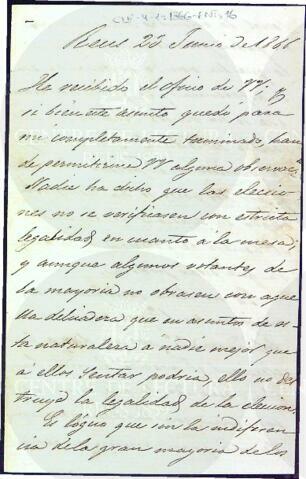 Reus 23 Junio de 1866
He recibido el oficio de VV. y
si bien este asunto quedó para
mi completamente terminado, han
de permitirme VV alguna observacⁿ.
Nadie ha dicho que las eleccio-
nes no se verificasen con estricta
legalidad, en cuanto á la mesa,
y aunque algunos votantes de
la mayoria no obrasen con aque
lla delicadeza que en asuntos de es
ta naturaleza á nadie mejor que
á ellos sentar podria, ello no des
truye la legalidad de la eleccion
Es lógico que sin la indiferen
cia de la gran mayoria de los